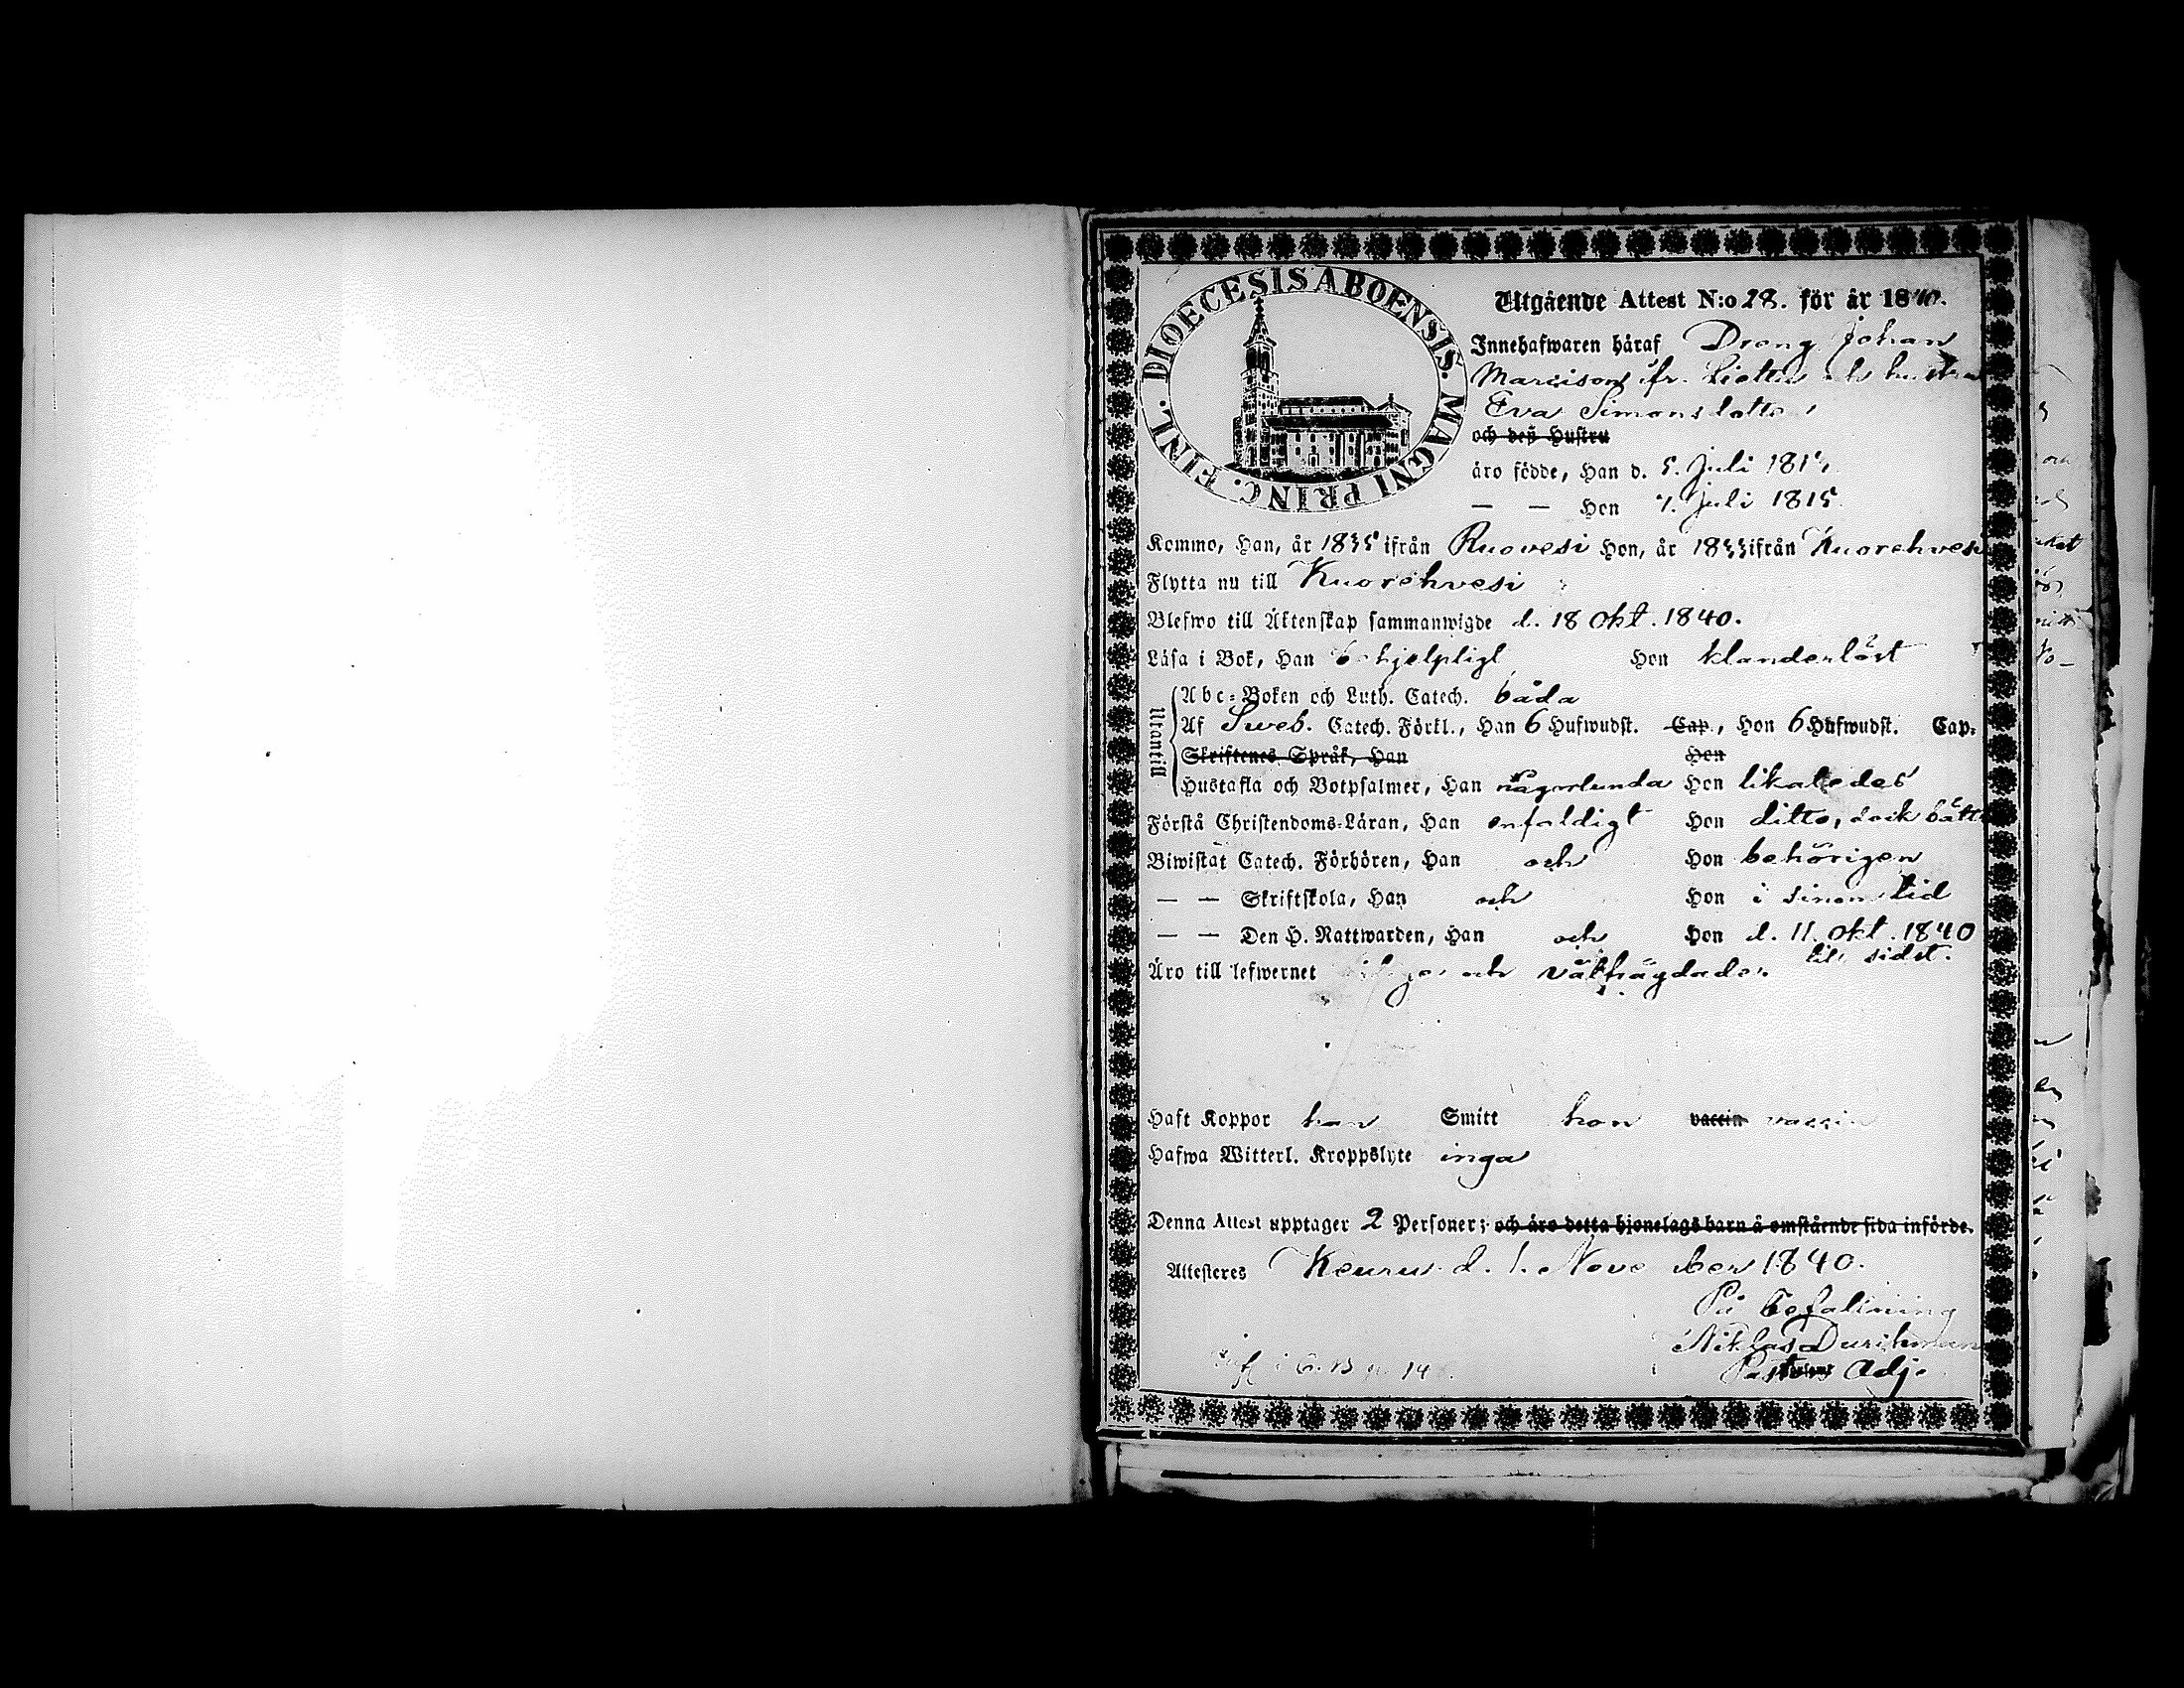 DIOECESIS ABOENSIS. MAGNI PRINC. FINL.
Utgående Attest N:o 28. för år 1840.
Innehafwaren häraf Dreng Johan
Marcisson ifr. och hustru
Eva Simonsdotter
och deß Hustru
äro födde, Han d. 5. Juli 181
— — Hon 7. Juli 1815
Kommo, Han, år 1835 ifrån Ruovesi Hon, år 1833 ifrån Kuorehvesi
Flytta nu till Kuorehvesi
Blefwo till Äktenskap sammanwigde d. 18 Okt. 1840.
Läsa i Bok, Han behjelpligt Hon klanderlöst
Utantill
Abc-Boken och Luth. Catech. båda
Af Sweb. Catech. Förkl., Han 6 Hufwudst. Cap., Hon 6 Hufwudst. Cap.
Skriftenes Språk, Han Hon
Hustafla och Botpsalmer, Han någorlunda Hon likaledes
Förstå Christendoms-Läran, Han enfaldigt Hon ditto, dock bättre
Biwistat Catech. Förhören, Han och Hon behörigen
— — Skriftskola, Han och Hon i sinom tid
— — Den H. Nattwarden, Han och Hon d. 11. Okt. 1840
till sidst.
Äro till lefwernet och välfrägdade.
Haft Koppor han Smitt hon vaccin vaccin
Hafwa Witterl. Kroppslyte inga
Denna Attest upptager 2 Personer; och äro detta hjonelags barn å omstående sida införde.
Attesteres Keuru d. 1. November 1840.
På befallning
Niklas
Pastors Adj.